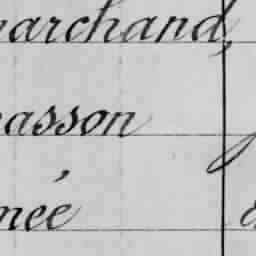 marchand,
asson
née